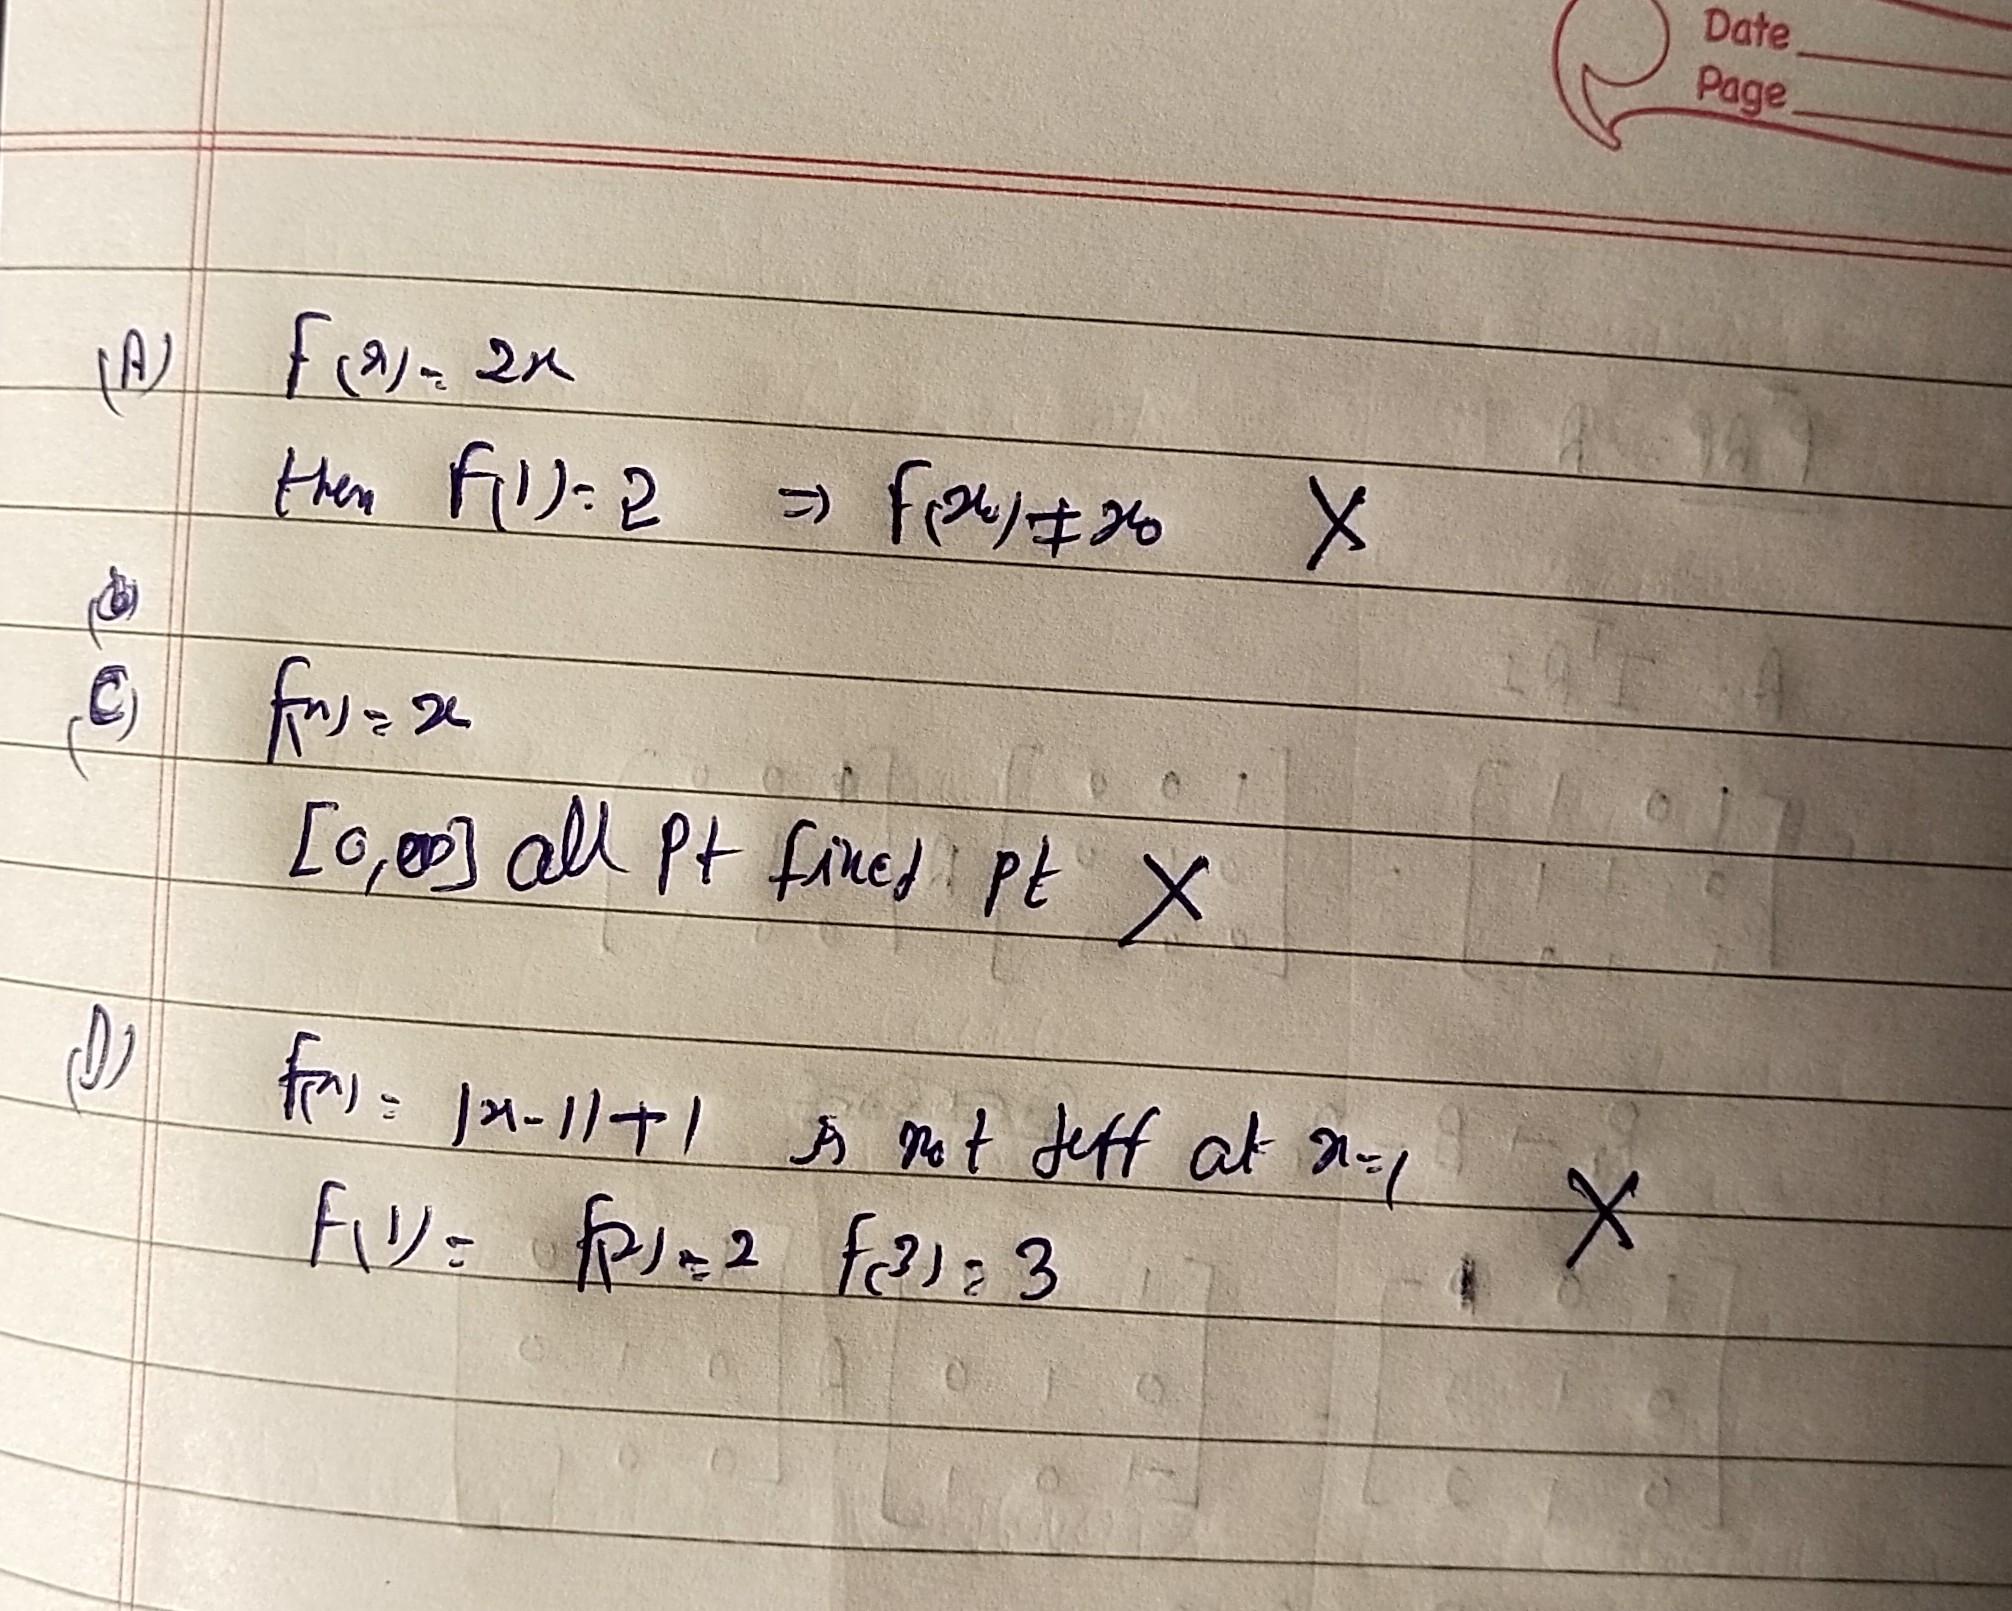 Date
Page
(A) f(x) = 2x
then f(1) = 2 ⇒ f(x₀) ≠ x₀ X
(b)
(C) f(x) = x
[0,∞] all pt fixed pt X
(D) f(x) = |x-1|+1 is not diff at x=1 X
f(1) = f(2) = 2 f(3) = 3